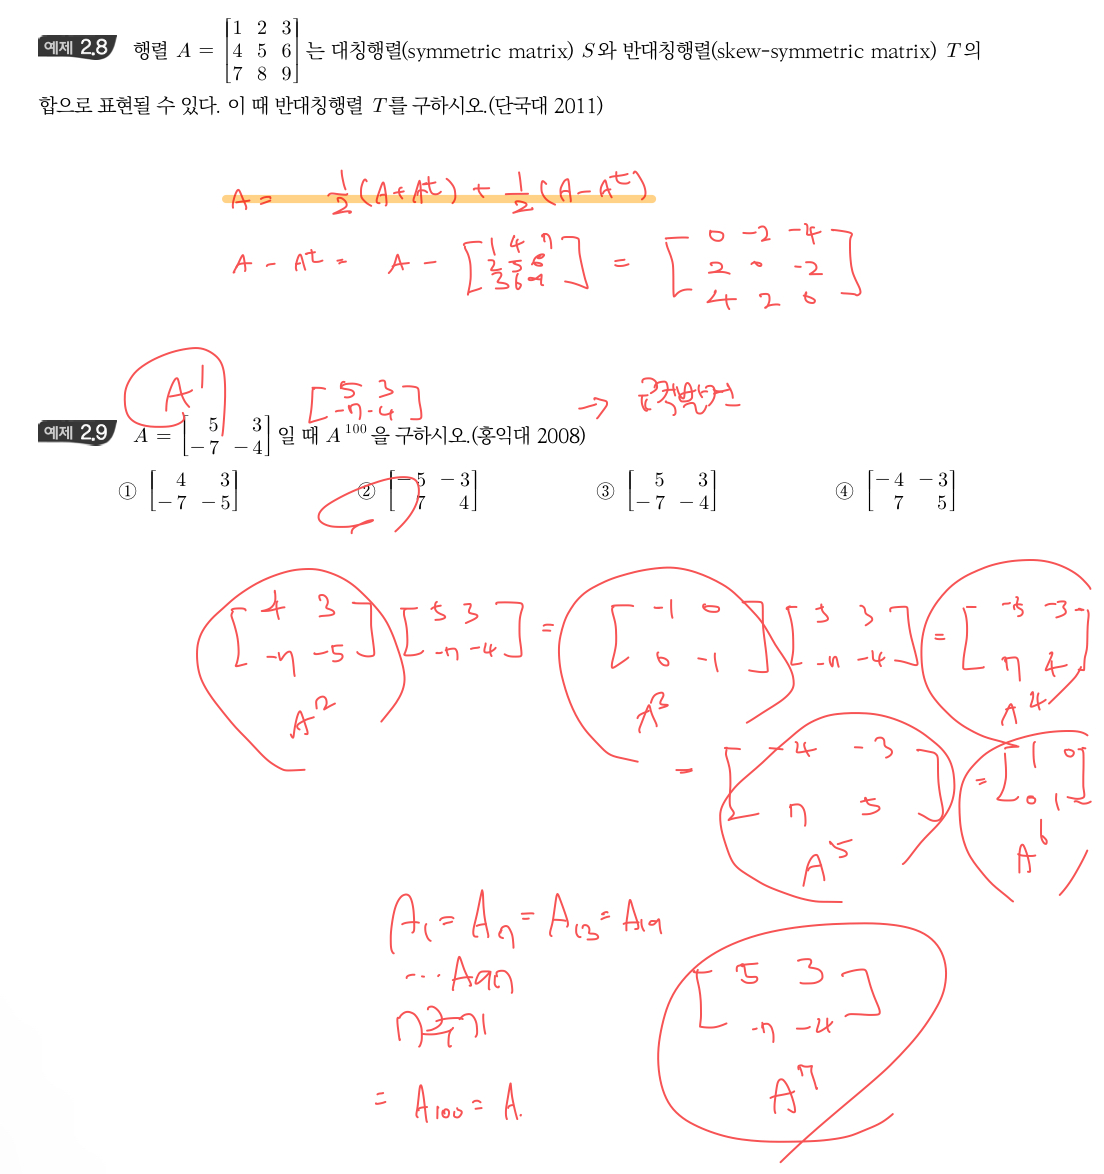 예제 2.8 행렬 A = [1 2 3; 4 5 6; 7 8 9] 는 대칭행렬(symmetric matrix) S와 반대칭행렬(skew-symmetric matrix) T의
합으로 표현될 수 있다. 이 때 반대칭행렬 T를 구하시오.(단국대 2011)
A = 1/2 (A+A^t) + 1/2 (A-A^t)
A - A^t = A - [1 4 7; 2 5 8; 3 6 9] = [0 -2 -4; 2 0 -2; 4 2 0]
A^1 [5 3; -7 -4] →
예제 2.9 A = [5 3; -7 -4] 일 때 A^100 을 구하시오.(홍익대 2008)
① [4 3; -7 -5] ② [-5 -3; 7 4] ③ [5 3; -7 -4] ④ [-4 -3; 7 5]
[4 3; -7 -5] [5 3; -7 -4] = [-1 0; 0 -1] [5 3; -7 -4] = [-5 -3; 7 4]
A^2 A^3 A^4
= [-4 -3; 7 5] = [1 0; 0 1]
A^5 A^6
A1 = A7 = A13 = A19
... A97
[5 3; -7 -4]
A^7
= A100 = A